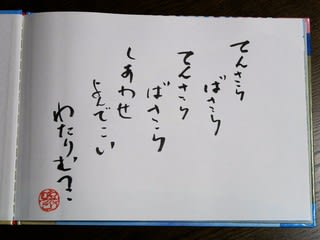 てんさら
ばさら
てんさら
ばさら
しあわせ
よんでこい
わたりむつこ